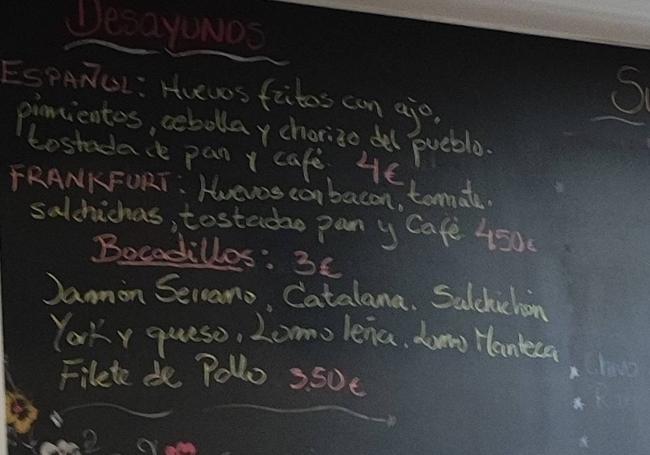 Desayunos
ESPAÑOL: Huevos fritos con ajo,
pimientos, cebolla y chorizo del pueblo.
tostada de pan y café 4€
FRANKFURT: Huevos con bacon, tomate.
salchichas, tostadas pan y Café 450€
Bocadillos: 3€
Jamón Serrano, Catalana, Salchichón
York y queso, Lomo leña, Lomo Manteca
Filete de Pollo 3,50€